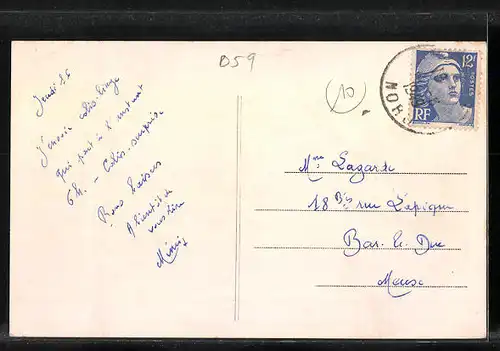 D59
10
12F
POSTES
RF
NOR
Jeudi 26
J'envoie colis-linge
qui part à l'instant
6h. - Colis-surprise
Bons baisers
A bientôt de
vous lire
Mimi
Mme Lagarde
18 Bis rue Lapique
Bar. le. Duc
Meuse